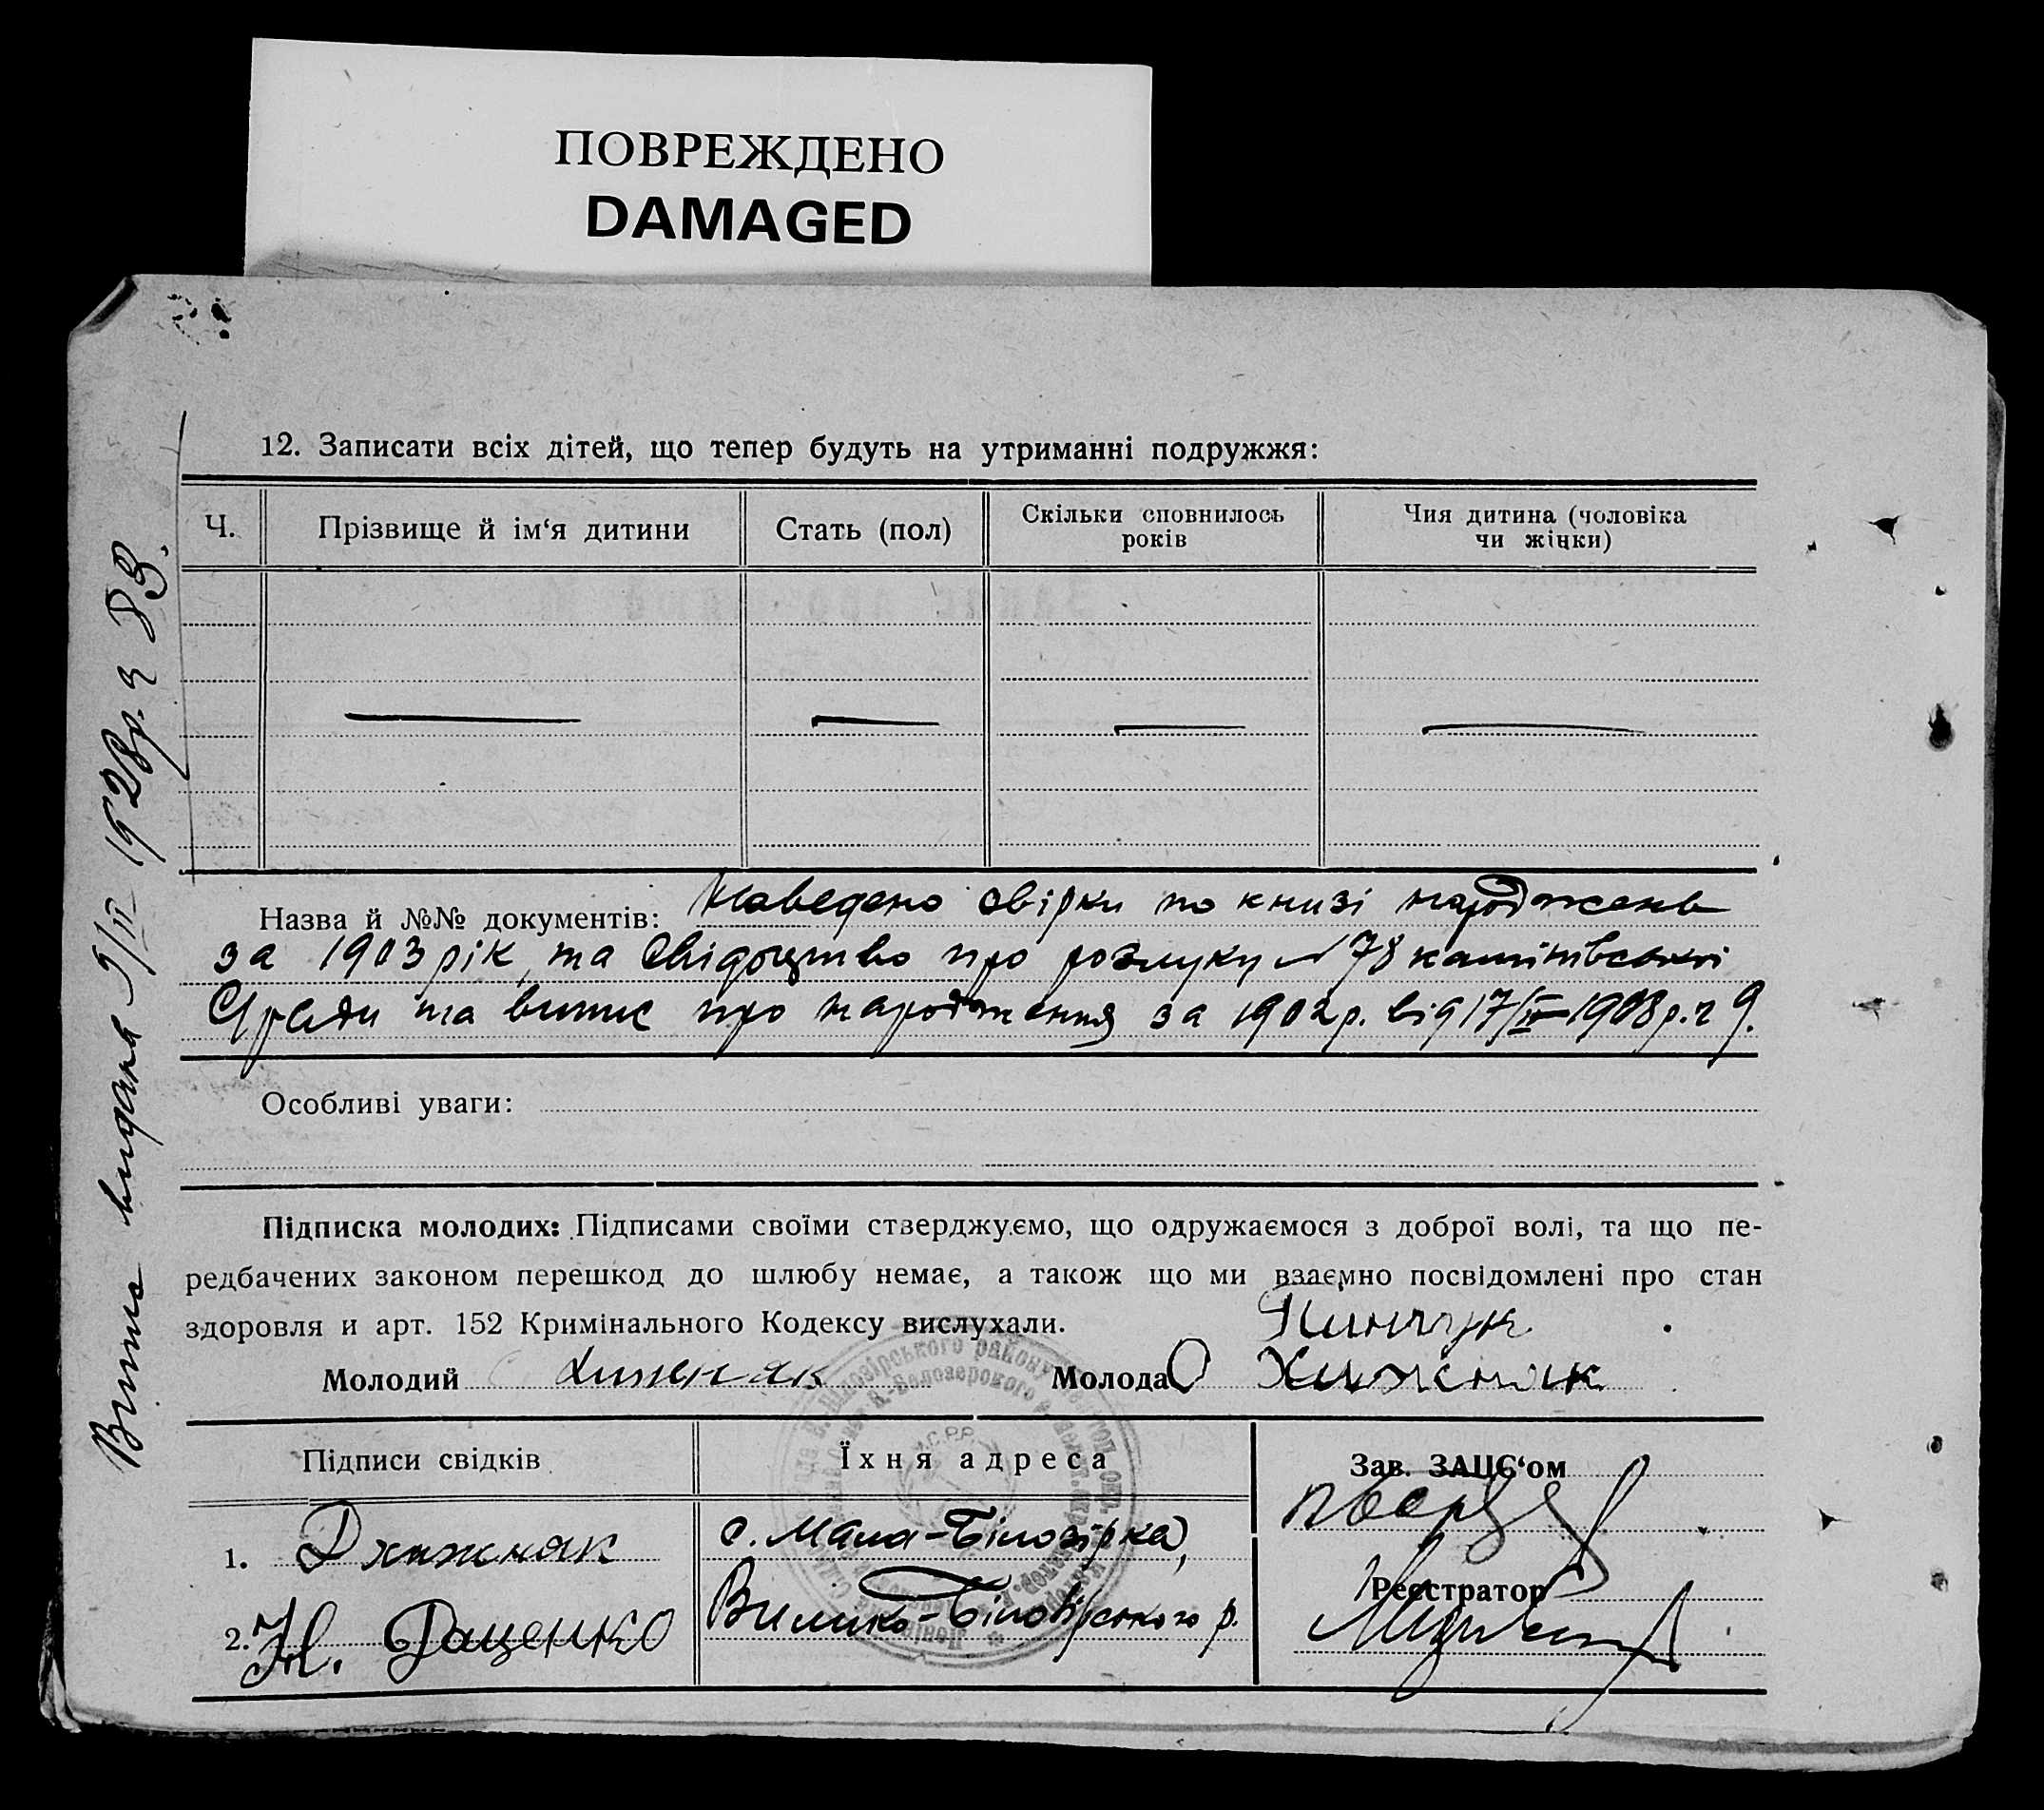 ПОВРЕЖДЕНО
DAMAGED
12. Записати всіх дітей, що тепер будуть на утриманні подружжя:
Ч.
Прізвище й ім‘я дитини
Стать (пол)
Скільки сповнилось
років
Чия дитина (чоловіка
чи жінки)
Назва й №№ документів: Наведено звірки по книзі народжень
за 1903 рік, та свідоцтво про розлуку № 78
С/ради та випис про народження за 1902 р. від 17/ІV 1908 р. ч 9.
Особливі уваги:
Підписка молодих: Підписами своїми стверджуємо, що одружаємося з доброї волі, та що пе-
редбачених законом перешкод до шлюбу немає, а також що ми взаємно посвідомлені про стан
здоровля и арт. 152 Кримінального Кодексу вислухали.
Пинчук
Молодий Хижняк
Молода О Хижняк
Підписи свідків
Їхня адреса
Зав. ЗАЦС‘ом
1. Д Хижняк
с. Мала-Білозірка,
2. Н. Даценко
Велико-Білозірського р.
Реєстратор
видана 1928 р. ч 83.